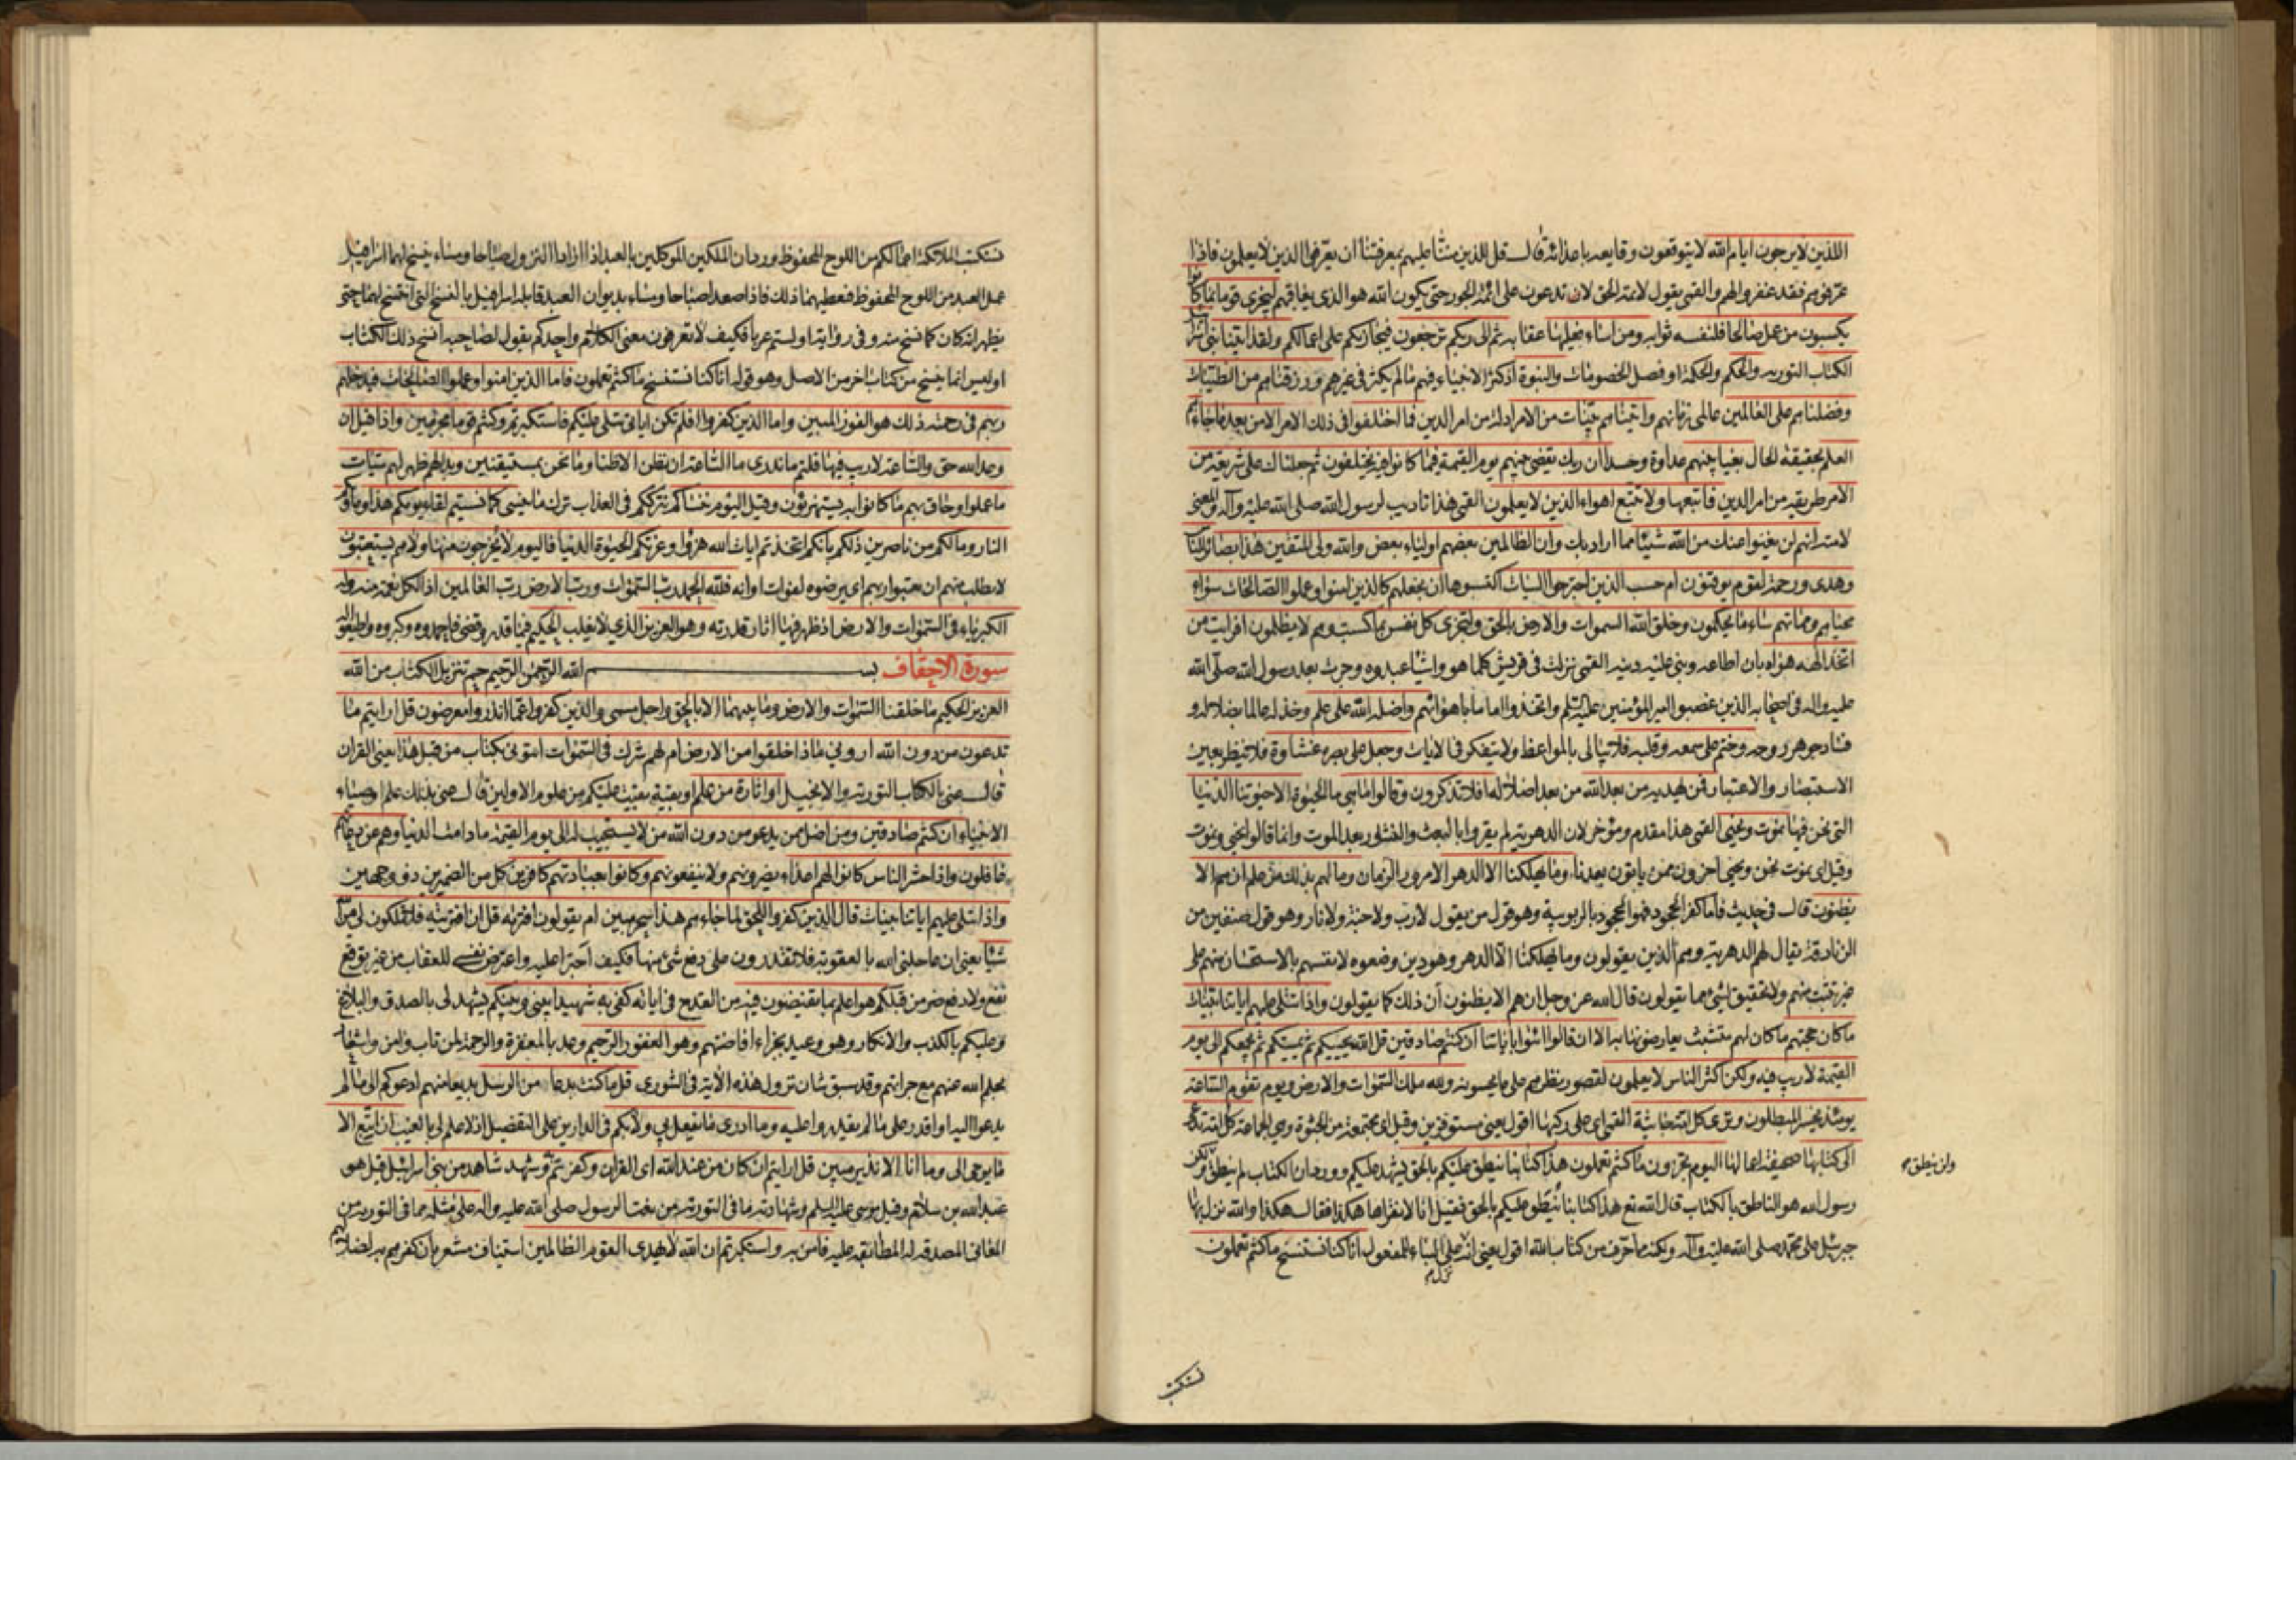 الذين لا يرجون ايام الله لا يتوقعون وقايعه باعدائه قال قل للذين مننّا عليهم بمعرفتنا ان يعرّفوا الذين لا يعلمون فاذا
عرّفوهم فقد غفروا لهم والقمى يقول لائمة الحق لا تدعون على ائمة الجور حتى يكون الله هو الذى يعاقبهم ليجزى قوما بما كانوا
يكسبون من عمل صالحا فلنفسه ثوابه ومن اساء فعليها عقابه ثم الى ربكم ترجعون فيجازيكم على اعمالكم ولقد اتينا بنى اسرائيل
الكتاب التورية والحكم والحكمة او فصل الخصومات والنبوة اذ كثر الانبياء فيهم ما لم يكثر فى غيرهم ورزقناهم من الطيبات
وفضلناهم على العالمين عالمى زمانهم واتيناهم بينات من الامر ادلة من امر الدين فما اختلفوا فى ذلك الامر الا من بعد ما جاءهم
العلم بحقيقة الحال بغيا بينهم عداوة وحسدا ان ربك يقضى بينهم يوم القيمة فيما كانوا فيه يختلفون ثم جعلناك على شريعة من
الامر طريقة من امر الدين فاتبعها ولا تتبع اهواء الذين لا يعلمون القمى هذا تاديب لرسول الله صلى الله عليه وآله والمعنى
لامته انهم لن يغنوا عنك من الله شيئا مما اراد بك وان الظالمين بعضهم اولياء بعض والله ولى المتقين هذا بصائر للناس
وهدى ورحمة لقوم يوقنون ام حسب الذين اجترحوا السيات اكتسبوها ان نجعلهم كالذين امنوا وعملوا الصالحات سواء
محياهم ومماتهم ساء ما يحكمون وخلق الله السموات والارض بالحق ولتجزى كل نفس بما كسبت وهم لا يظلمون افرايت من
اتخذ الهه هواه بان اطاعه وبنى عليه دينه القمى نزلت فى قريش كلما هووا شيئا عبدوه وجرت بعد رسول الله صلى الله
عليه واله فى اصحابه الذين غصبوا امير المؤمنين عليه السلم واتخذوا اماما باهوائهم واضله الله على علم وخذله عالما بضلاله و
فساد جوهر روحه وختم على سمعه وقلبه فلا يبالى بالمواعظ ولا يتفكر فى الايات وجعل على بصره غشاوة فلا ينظر بعين
الاستبصار والاعتبار فمن يهديه من بعد الله من بعد اضلاله افلا تذكرون وقالوا ما هى ما الحيوة الا حيوتنا الدنيا
التى نحن فيها نموت ونحيى القمى هذا مقدم ومؤخر لان الدهرية لم يقروا بالبعث والنشور بعد الموت وانما قالوا نحيى ونموت
وقيل اى نموت نحن ويحيى اخرون ممن ياتون بعدنا وما يهلكنا الا الدهر الا مرور الزمان وما لهم بذلك من علم ان هم الا
يظنون قال فى حديث فاما كفر الجحود فهو الجحود بالربوبية وهو قول من يقول لا رب ولا جنة ولا نار وهو قول صنفين من
الزنادقة يقال لهم الدهرية وهم الذين يقولون وما يهلكنا الا الدهر وهو دين وضعوه لانفسهم بالاستحسان منهم على
غير تثبت منهم ولا تحقيق لشئ مما يقولون قال الله عز وجل ان هم الا يظنون ان ذلك كما يقولون واذا تتلى عليهم اياتنا بينات
ما كان حجتهم ما كان لهم متشبث يعارضونها به الا ان قالوا ائتوا بابائنا ان كنتم صادقين قل الله يحييكم ثم يميتكم ثم يجمعكم الى يوم
القيمة لا ريب فيه ولكن اكثر الناس لا يعلمون لقصور نظرهم على ما يحسونه ولله ملك السموات والارض ويوم تقوم الساعة
يومئذ يخسر المبطلون وترى كل امة جاثية القمى اى على ركبها اقول يعنى مستوفزين وقيل اى مجتمعة من الجثوة وهى الجماعة كل امة تدعى
الى كتابها صحيفة اعمالها اليوم تجزون ما كنتم تعملون هذا كتابنا ينطق عليكم بالحق يشهد عليكم وورد ان الكتاب لم ينطق ولكن
ولن ينطق م
رسول الله هو الناطق بالكتاب قال الله تع هذا كتابنا يُنطَق عليكم بالحق فقيل انا لا نقراها هكذا فقال هكذا والله نزل بها
جبرئيل على محمد صلى الله عليه وآله ولكنه مما حرف من كتاب الله اقول يعنى انه على البناء للمفعول انا كنا نستنسخ ما كنتم تعملون
نستكتب
نستكتب الملائكة اعمالكم من اللوح المحفوظ ورد ان الملكين الموكلين بالعبد اذا ارادا النزول صباحا ومساء ينسخ لهما اسرافيل
عمل العبد من اللوح المحفوظ فيعطيهما ذلك فاذا صعدا صباحا ومساء بديوان العبد قابله اسرافيل بالنسخ التى انتسخ لهما حتى
يظهر انه كان كما نسخ منه وفى رواية اولستم عربا فكيف لا تعرفون معنى الكلام واحدكم يقول لصاحبه انسخ ذلك الكتاب
اوليس انما ينسخ من كتاب اخر من الاصل وهو قوله انا كنا نستنسخ ما كنتم تعملون فاما الذين امنوا وعملوا الصالحات فيدخلهم
ربهم فى رحمته ذلك هو الفوز المبين واما الذين كفروا افلم تكن اياتى تتلى عليكم فاستكبرتم وكنتم قوما مجرمين واذا قيل ان
وعد الله حق والساعة لا ريب فيها قلتم ما ندرى ما الساعة ان نظن الا ظنا وما نحن بمستيقنين وبدا لهم ظهر لهم سيئات
ما عملوا وحاق بهم ما كانوا به يستهزئون وقيل اليوم ننساكم نترككم فى العذاب ترك ما ينسى كما نسيتم لقاء يومكم هذا وماويكم
النار وما لكم من ناصرين ذلكم بانكم اتخذتم ايات الله هزوا وغرتكم الحيوة الدنيا فاليوم لا يخرجون منها ولا هم يستعتبون
لا يطلب منهم ان يعتبوا ربهم اى يرضوه لفوات اوانه فلله الحمد رب السموات ورب الارض رب العالمين اذ الكل نعمة منه وله
الكبرياء فى السموات والارض اذ ظهر فيها اثار قدرته وهو العزيز الذى لا يغلب الحكيم فيما قدر وقضى فاحمدوه وكبروه واطيعوا له
سورة الاحقاف بسم الله الرحمن الرحيم حم تنزيل الكتاب من الله
العزيز الحكيم ما خلقنا السموات والارض وما بينهما الا بالحق واجل مسمى والذين كفروا عما انذروا معرضون قل ارايتم ما
تدعون من دون الله ارونى ماذا خلقوا من الارض ام لهم شرك فى السموات ائتونى بكتاب من قبل هذا يعنى القران
قال عنى بالكتاب التورية والانجيل او اثارة من علم او بقية بقيت عليكم من علوم الاولين قال عنى بذلك علم اوصياء
الانبياء ان كنتم صادقين ومن اضل ممن يدعو من دون الله من لا يستجيب له الى يوم القيمة ما دامت الدنيا وهم عن دعائهم
غافلون واذا حشر الناس كانوا لهم اعداء يضرونهم ولا ينفعونهم وكانوا بعبادتهم كافرين كل من الضميرين ذو وجهين
واذا تتلى عليهم اياتنا بينات قال الذين كفروا للحق لما جاءهم هذا سحر مبين ام يقولون افتريه قل ان افتريته فلا تملكون لى من الله
شيئا يعنى ان عاجلنى الله بالعقوبة فلا تقدرون على دفع شئ منها فكيف اجترا عليه واعرض نفسى للعقاب من غير توقع
نفع ولا دفع ضر من قبلكم هو اعلم بما تفيضون فيه من القدح فى اياته كفى به شهيدا بينى وبينكم يشهد لى بالصدق والبلاغ
وعليكم بالكذب والانكار وهو وعيد بجزاء افاضتهم وهو الغفور الرحيم وعد بالمغفرة والرحمة لمن تاب وامن واشعار
بحلم الله عنهم مع جراتهم وقد سبق شان نزول هذه الاية فى الشورى قل ما كنت بدعا من الرسل بديعا منهم ادعوكم الى ما لم
يدعوا اليه او اقدر على ما لم يقدروا عليه وما ادرى ما يفعل بى ولا بكم فى الدارين على التفصيل اذ لا علم لى بالغيب ان اتبع الا
ما يوحى الى وما انا الا نذير مبين قل ارايتم ان كان من عند الله اى القران وكفرتم به وشهد شاهد من بنى اسرائيل قيل هو
عبد الله بن سلام وقيل موسى عليه السلم وشهادته ما فى التورية من نعت الرسول صلى الله عليه واله على مثله مما فى التورية من
المعانى المصدقة له المطابقة عليه فامن به واستكبرتم ان الله لا يهدى القوم الظالمين استيناف مشعر بان كفرهم به لضلالهم